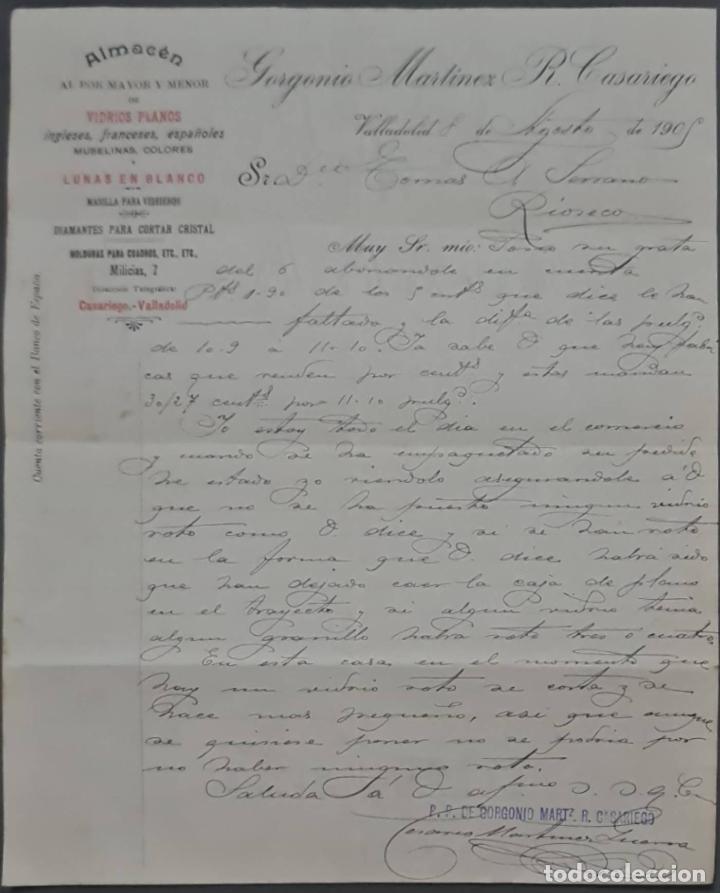 Almacén
AL POR MAYOR Y MENOR
DE
VIDRIOS PLANOS
ingleses, franceses, españoles
MUSELINAS, COLORES
Y
LUNAS EN BLANCO
MASILLA PARA VIDRIEROS
DIAMANTES PARA CORTAR CRISTAL
MOLDURAS PARA CUADROS, ETC., ETC.
Milicias, 7
Dirección Telegráfica:
Casariego.-Valladolid
Cuenta corriente con el Banco de España
Gorgonio Martínez R. Casariego
Valladolid 8 de Agosto de 1905
Sr. Dn Tomas A Serrano
Rioseco
Muy Sr. mio: su grata
del 6 abonandole en cuenta
Pts 1.90 de los 5 cents que dice le han
faltado y la difa de las pulgs
de 10-9 a 11-10. Ya sabe V que hay fabri
cas que venden por cents y estas mandan
30/27 cents por 11-10 pulgs.
Yo estoy todo el dia en el comercio
y cuando se ha empaquetado su pedido
he estado yo viendolo asegurandole á V
que no se ha puesto ningun vidrio
roto como V. dice y si se han roto
en la forma que V. dice habrá sido
que han dejado caer la caja de plano
en el trayecto y si algun vidrio tenia
algun granillo habra roto tres o cuatro
En esta casa en el momento que
hay un vidrio roto se corta y se
hace mas pequeño, asi que aunque
se quisiese poner no se podria por
no haber ninguno roto.
Saluda á V afmo S. S. q.
P. P. DE GORGONIO MARTZ. R. CASARIEGO
Cesareo Martinez
todocoleccion